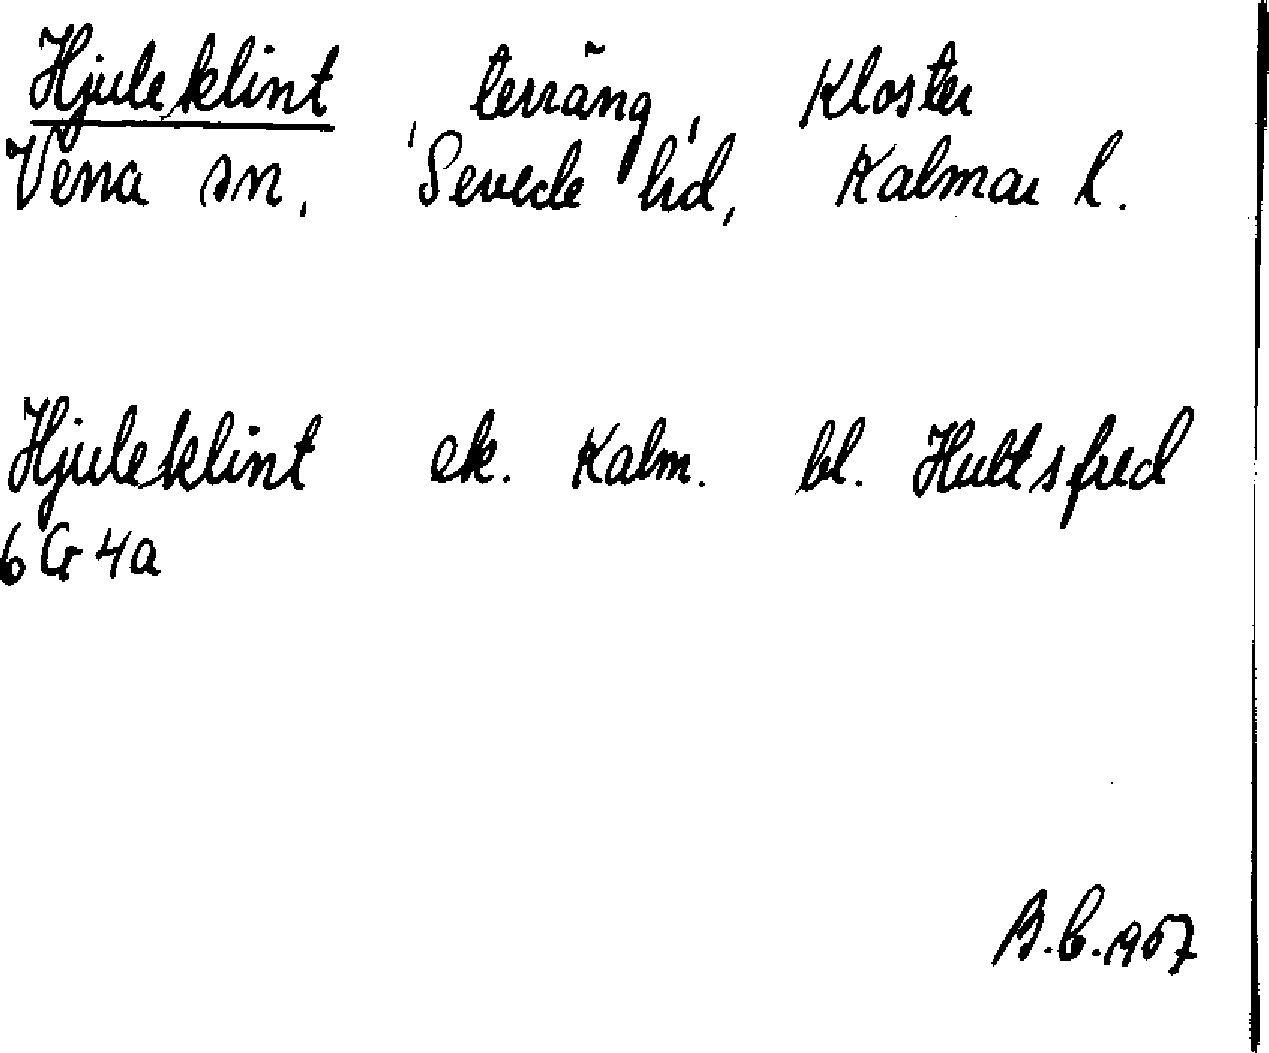 Hjuleklint, terräng, Kloster
Vena sn, Sevede hd, Kalmar l.
Hjuleklint ek. Kalm. bl. Hultsfred
6 G 4a